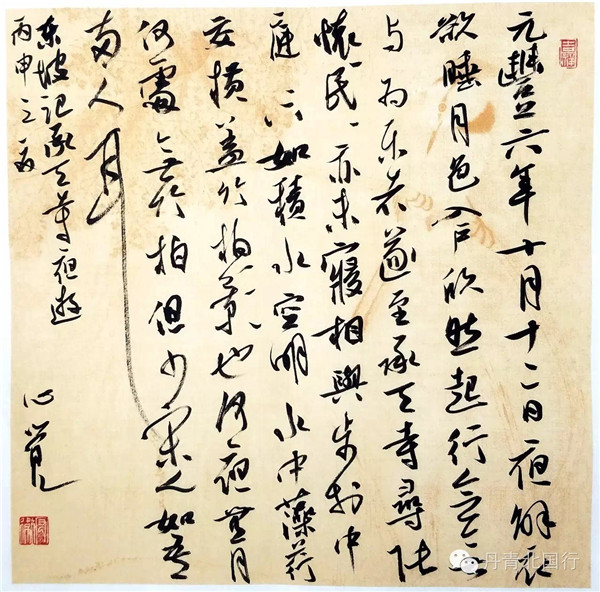 元豐六年十月十二日夜解衣
欲睡月色入户欣然起行念無
与为乐者遂至承天寺尋张
懷民亦未寢相與步於中
庭下如積水空明水中藻荇
交横蓋竹柏影也何夜無月
何處無竹柏但少閑人如吾
两人耳
东坡记承天寺夜遊
丙申之夏
丹青北国行